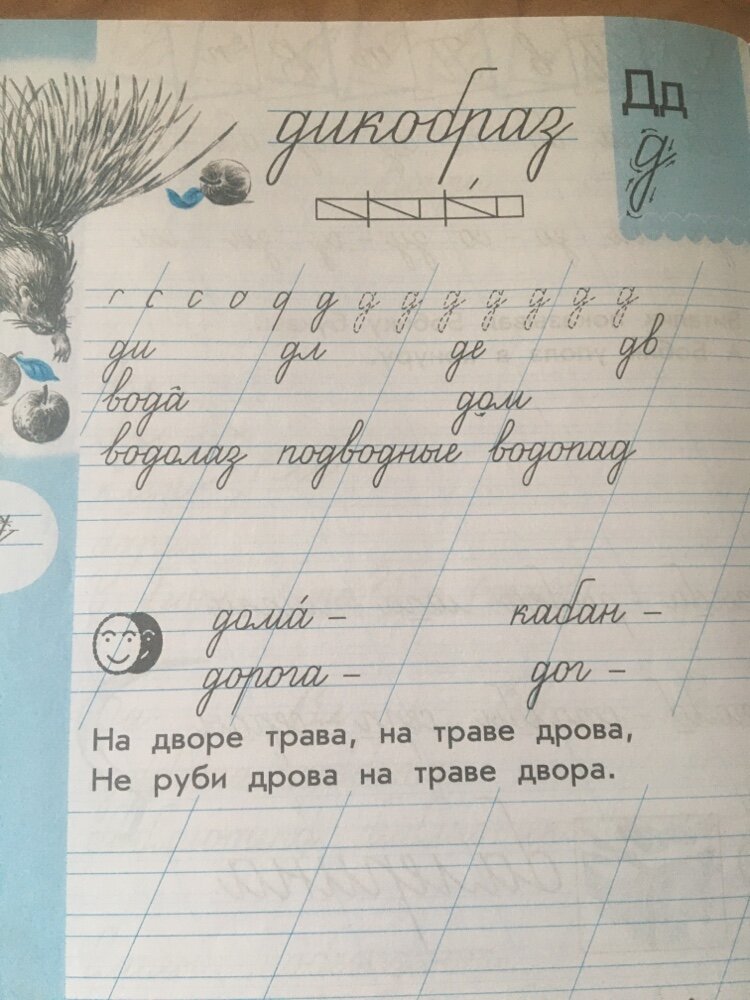 дикобраз
Дд
д
г с с о д д д д д д д д д
ди дл де дв
вода̂ дом
водолаз подводные водопад
дома́ – кабан –
дорога – дог –
На дворе трава, на траве дрова,
Не руби дрова на траве двора.